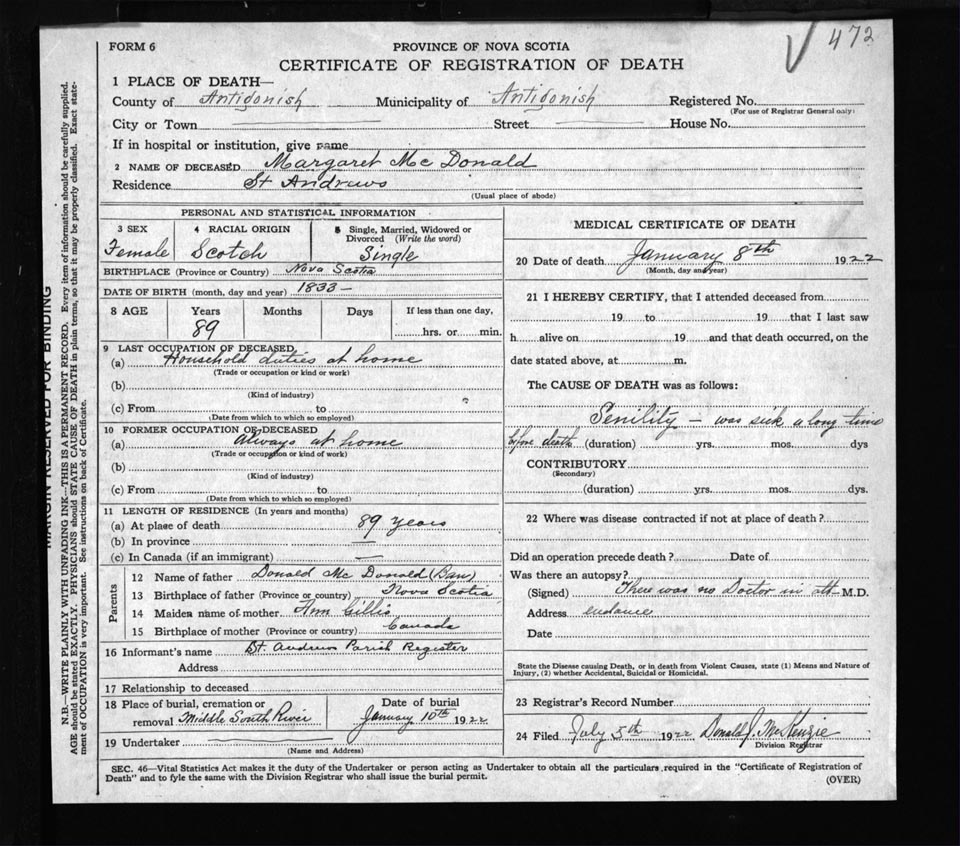 472
FORM 6
PROVINCE OF NOVA SCOTIA
CERTIFICATE OF REGISTRATION OF DEATH
1 PLACE OF DEATH—
County of Antigonish Municipality of Antigonish Registered No.
(For use of Registrar General only)
City or Town Street House No.
If in hospital or institution, give name
2 NAME OF DECEASED Margaret McDonald
Residence St Andrews
(Usual place of abode)
PERSONAL AND STATISTICAL INFORMATION
3 SEX 4 RACIAL ORIGIN 5 Single, Married, Widowed or Divorced (Write the word)
Female Scotch Single
BIRTHPLACE (Province or Country) Nova Scotia
DATE OF BIRTH (month, day and year) 1833 —
8 AGE Years Months Days If less than one day,
89 hrs. or min.
9 LAST OCCUPATION OF DECEASED
(a) Household duties at home
(Trade or occupation or kind or work)
(b)
(Kind of industry)
(c) From to
(Date from which to which so employed)
10 FORMER OCCUPATION OF DECEASED
(a) Always at home
(Trade or occupation or kind of work)
(b)
(Kind of industry)
(c) From to
(Date from which to which so employed)
11 LENGTH OF RESIDENCE (In years and months)
(a) At place of death 89 years
(b) In province —
(c) In Canada (if an immigrant) —
Parents
12 Name of father Donald McDonald (Ban)
13 Birthplace of father (Province or country) Nova Scotia
14 Maiden name of mother Ann Gillis
15 Birthplace of mother (Province or country) Canada
16 Informant's name St. Andrews Parish Register
Address
17 Relationship to deceased
18 Place of burial, cremation or removal Middle South River
Date of burial January 10th 1922
19 Undertaker
(Name and Address)
MEDICAL CERTIFICATE OF DEATH
20 Date of death January 8th 1922
(Month, day and year)
21 I HEREBY CERTIFY, that I attended deceased from
19 to 19 that I last saw
h alive on 19 and that death occurred, on the
date stated above, at m.
The CAUSE OF DEATH was as follows:
Senility — was sick a long time
before death (duration) yrs. mos. dys
CONTRIBUTORY
(Secondary)
(duration) yrs. mos. dys.
22 Where was disease contracted if not at place of death?
Did an operation precede death? Date of
Was there an autopsy?
(Signed) There was no Doctor in att- M.D.
Address endance
Date
State the Disease causing Death, or in death from Violent Causes, state (1) Means and Nature of
Injury, (2) whether Accidental, Suicidal or Homicidal.
23 Registrar's Record Number
24 Filed July 5th 1922 Donald J. McKenzie
Division Registrar
SEC. 46—Vital Statistics Act makes it the duty of the Undertaker or person acting as Undertaker to obtain all the particulars required in the "Certificate of Registration of
Death" and to fyle the same with the Division Registrar who shall issue the burial permit.
(OVER)
MARGIN RESERVED FOR BINDING
N.B.—WRITE PLAINLY WITH UNFADING INK—THIS IS A PERMANENT RECORD. Every item of information should be carefully supplied.
AGE should be stated EXACTLY. PHYSICIANS should STATE CAUSE OF DEATH in plain terms, so that it may be properly classified. Exact state-
ment of OCCUPATION is very important. See instructions on back of Certificate.